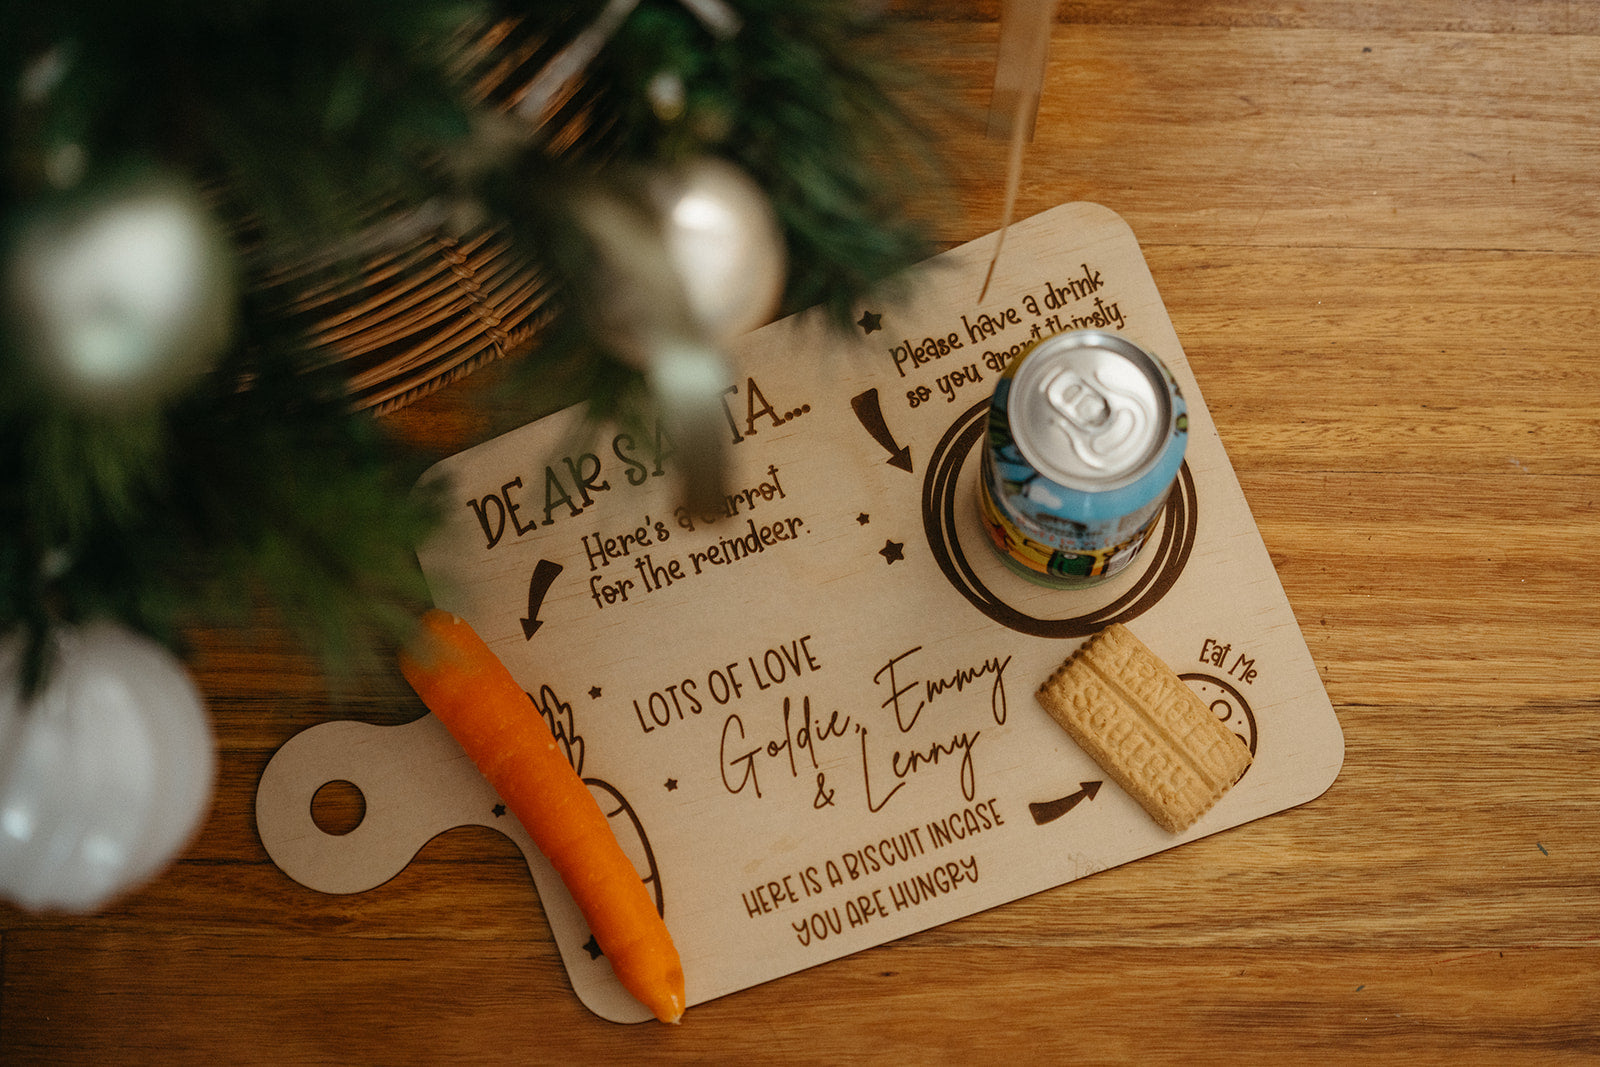 DEAR SANTA...
Here's a carrot
for the reindeer.
Please have a drink
so you aren't thirsty.
LOTS OF LOVE
Goldie, Emmy
& Lenny
Eat Me
ARNOTT'S
SCOTCH
HERE IS A BISCUIT INCASE
YOU ARE HUNGRY